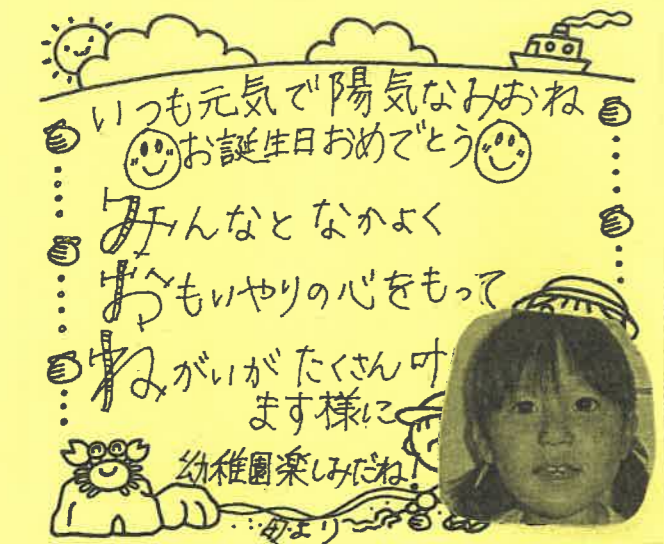 いつも元気で陽気なみおね
お誕生日おめでとう
みんなと なかよく
おもいやりの心をもって
ねがいが たくさん叶
ます様に
幼稚園楽しみだね!
より